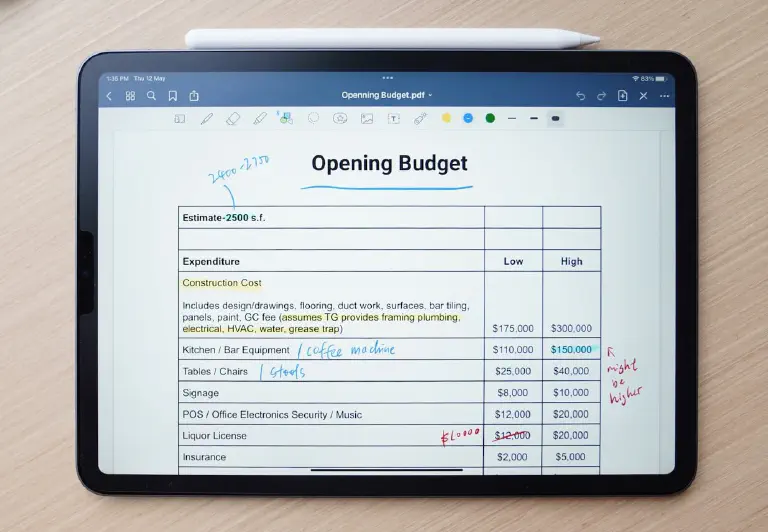 1:35 PM Thu 12 May
83%
Openning Budget.pdf
T
Opening Budget
2400-2750
Estimate-2500 s.f.
Expenditure Low High
Construction Cost
Includes design/drawings, flooring, duct work, surfaces, bar tiling,
panels, paint, GC fee (assumes TG provides framing plumbing,
electrical, HVAC, water, grease trap) $175,000 $300,000
Kitchen / Bar Equipment / coffee machine $110,000 $150,000
Tables / Chairs / stools $25,000 $40,000
might
be
higher
Signage $8,000 $10,000
POS / Office Electronics Security / Music $12,000 $20,000
Liquor License $10000 $12,000 $20,000
Insurance $2,000 $5,000